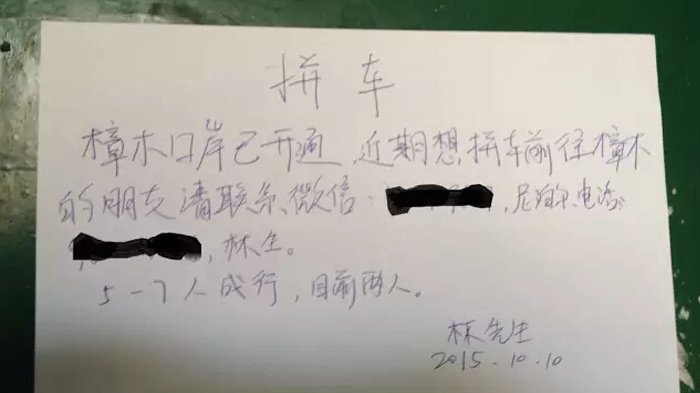 拼车
樟木口岸已开通,近期想拼车前往樟木
的朋友请联系微信: ,尼泊尔电话:
,林生。
5-7人成行,目前两人。
林先生
2015.10.10